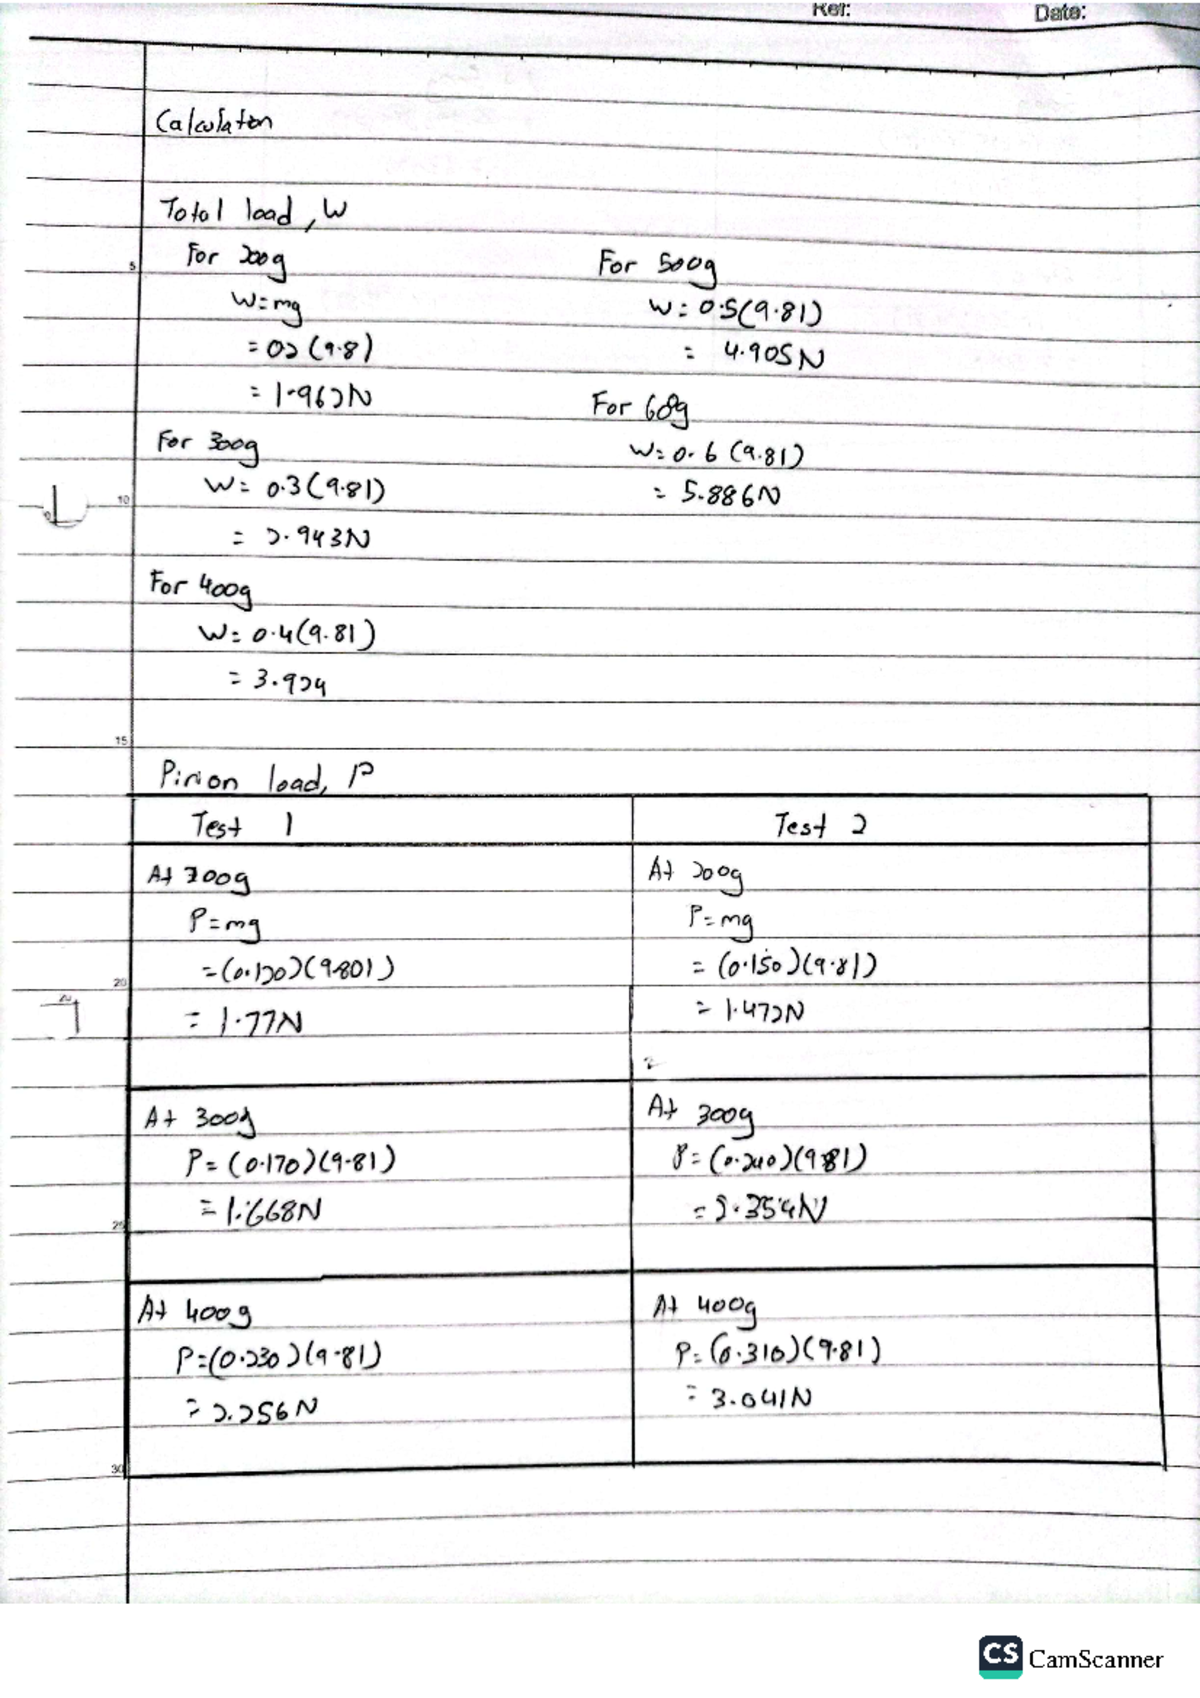 Ref: Date:
Calculaton
Total load, W
For 200g
W=mg
= 02 (9.8)
= 1.962N
For 300g
W= 0.3(9.81)
= 2.943N
For 400g
W= 0.4(9.81)
= 3.924
For 500g
W= 0.5(9.81)
= 4.905N
For 600g
W= 0.6 (9.81)
= 5.886N
Pinion load, P
Test 1
At 200g
P=mg
=(0.120)(9.801)
= 1.77N
At 300g
P= (0.170)(9.81)
= 1.668N
At 400g
P=(0.230)(9.81)
= 2.256N
Test 2
At 200g
P=mg
= (0.150)(9.81)
= 1.472N
At 300g
P= (0.240)(9.81)
= 2.354N
At 400g
P= (0.310)(9.81)
= 3.041N
5
10
15
20
25
30
CS CamScanner